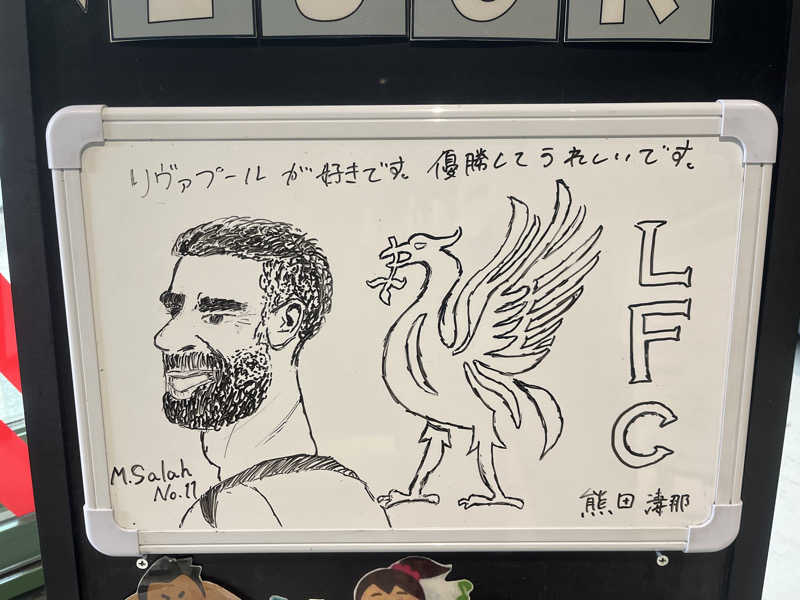 リヴァプールが好きです。優勝してうれしいです。
LFC
M.Salah
No.11
熊田 凄那